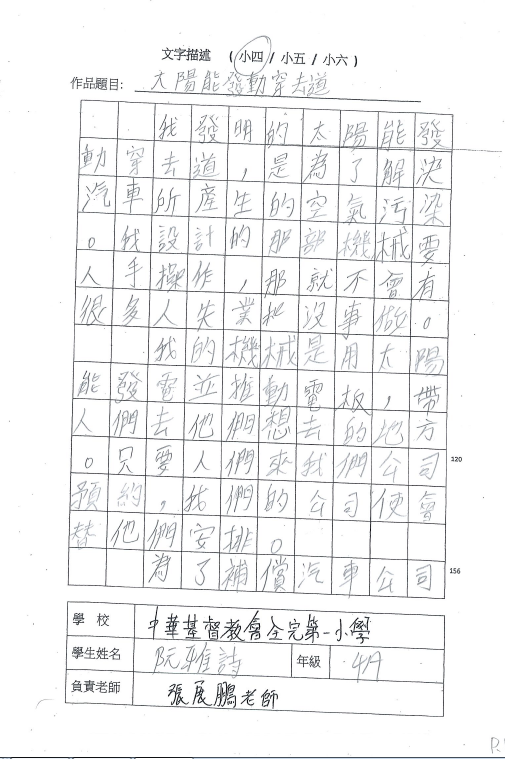 文字描述 ( 小四 / 小五 / 小六 )
作品題目: 太陽能發動穿去道
我發明的太陽能發
動穿去道，是為了解決
汽車所產生的空氣污染
。我設計的那部機械要
人手操作，那就不會有
很多人失業和沒事做。
我的機械是用太陽
能發電並推動電板，帶
人們去他們想去的地方
。只要人們來我們公司 120
預約，我們的公司便會
替他們安排。
為了補償汽車公司 156
學校 中華基督教會全完第一小學
學生姓名 阮雅詩 年級
負責老師 張展鵬老師